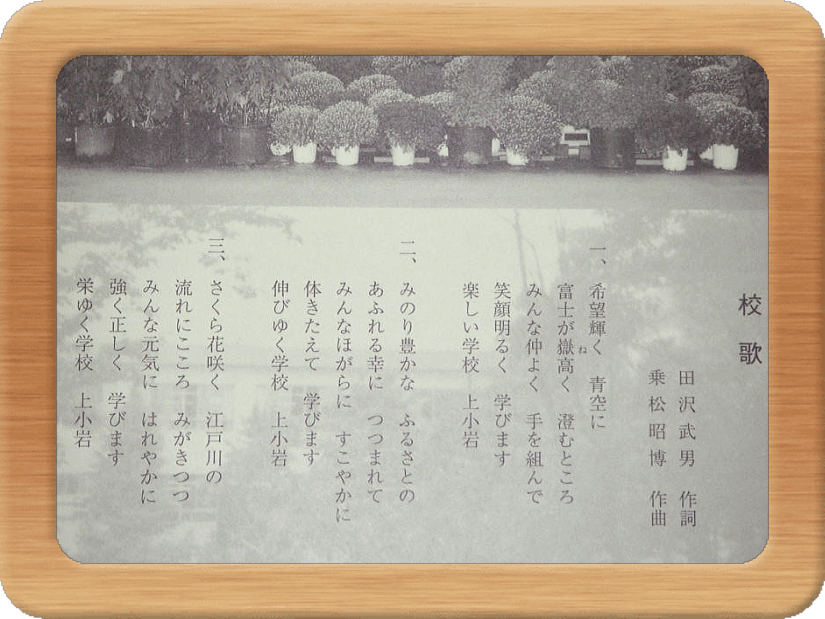 校歌
田沢武男 作詞
乗松昭博 作曲
一、希望輝く 青空に
富士が嶽高く 澄むところ
ね
みんな仲よく 手を組んで
笑顔明るく 学びます
楽しい学校 上小岩
二、みのり豊かな ふるさとの
あふれる幸に つつまれて
みんなほがらに すこやかに
体きたえて 学びます
伸びゆく学校 上小岩
三、さくら花咲く 江戸川の
流れにこころ みがきつつ
みんな元気に はれやかに
強く正しく 学びます
栄ゆく学校 上小岩